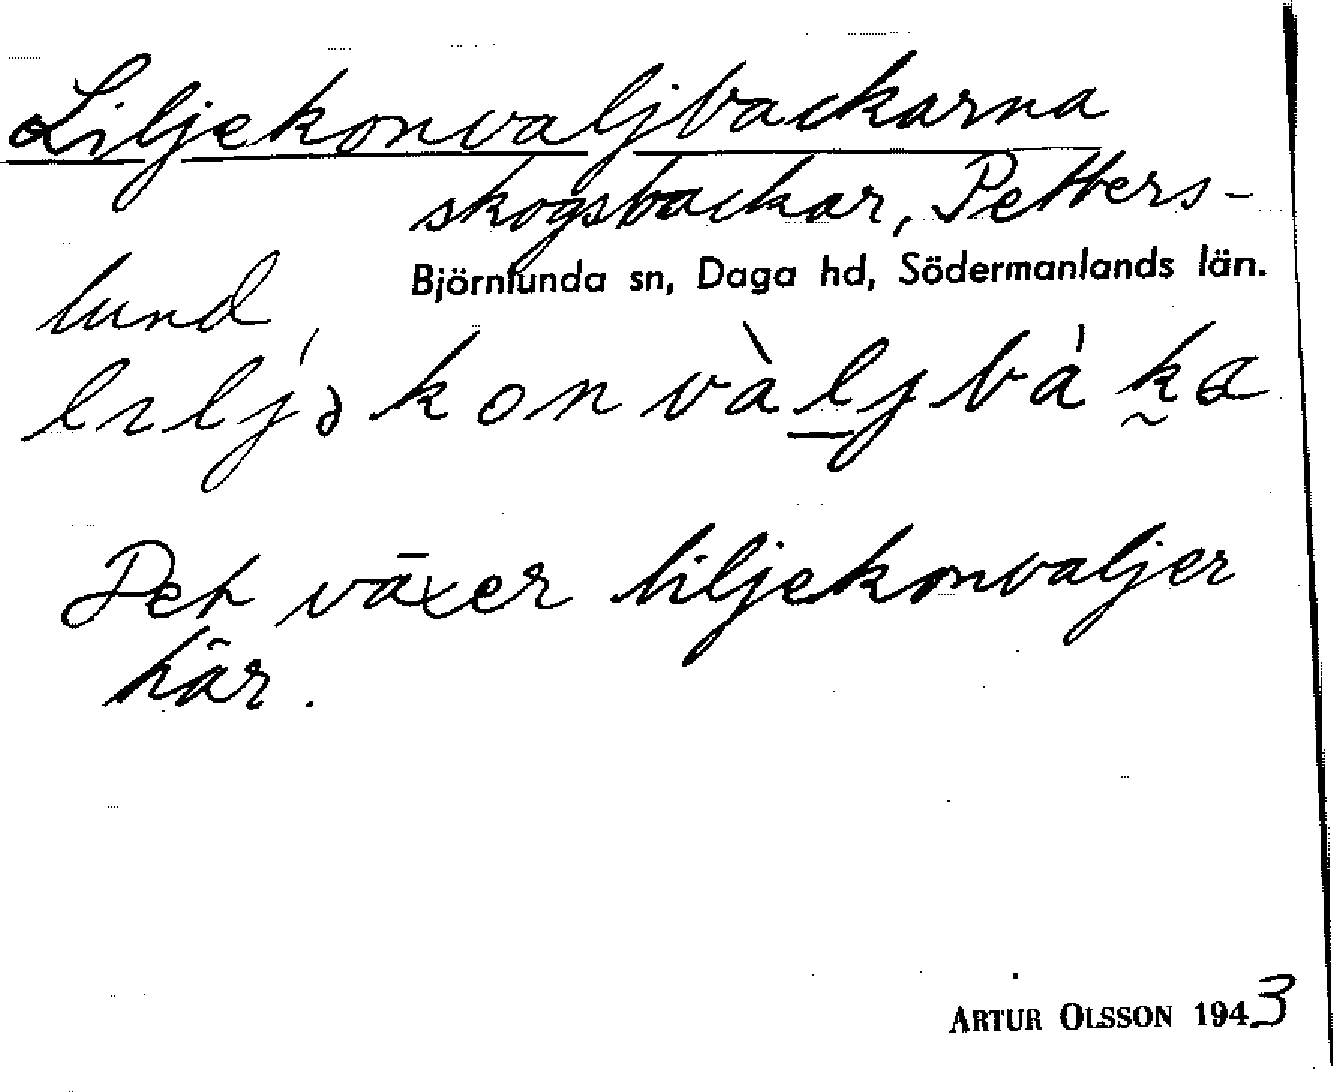 Liljekonvaljbackarna
skogsbackar, Petters-
Björnlunda sn, Daga hd, Södermanlands län.
lund
lılj́ə konvàljbá ka
Det växer liljekonvaljer
här.
ARTUR OLSSON 1943